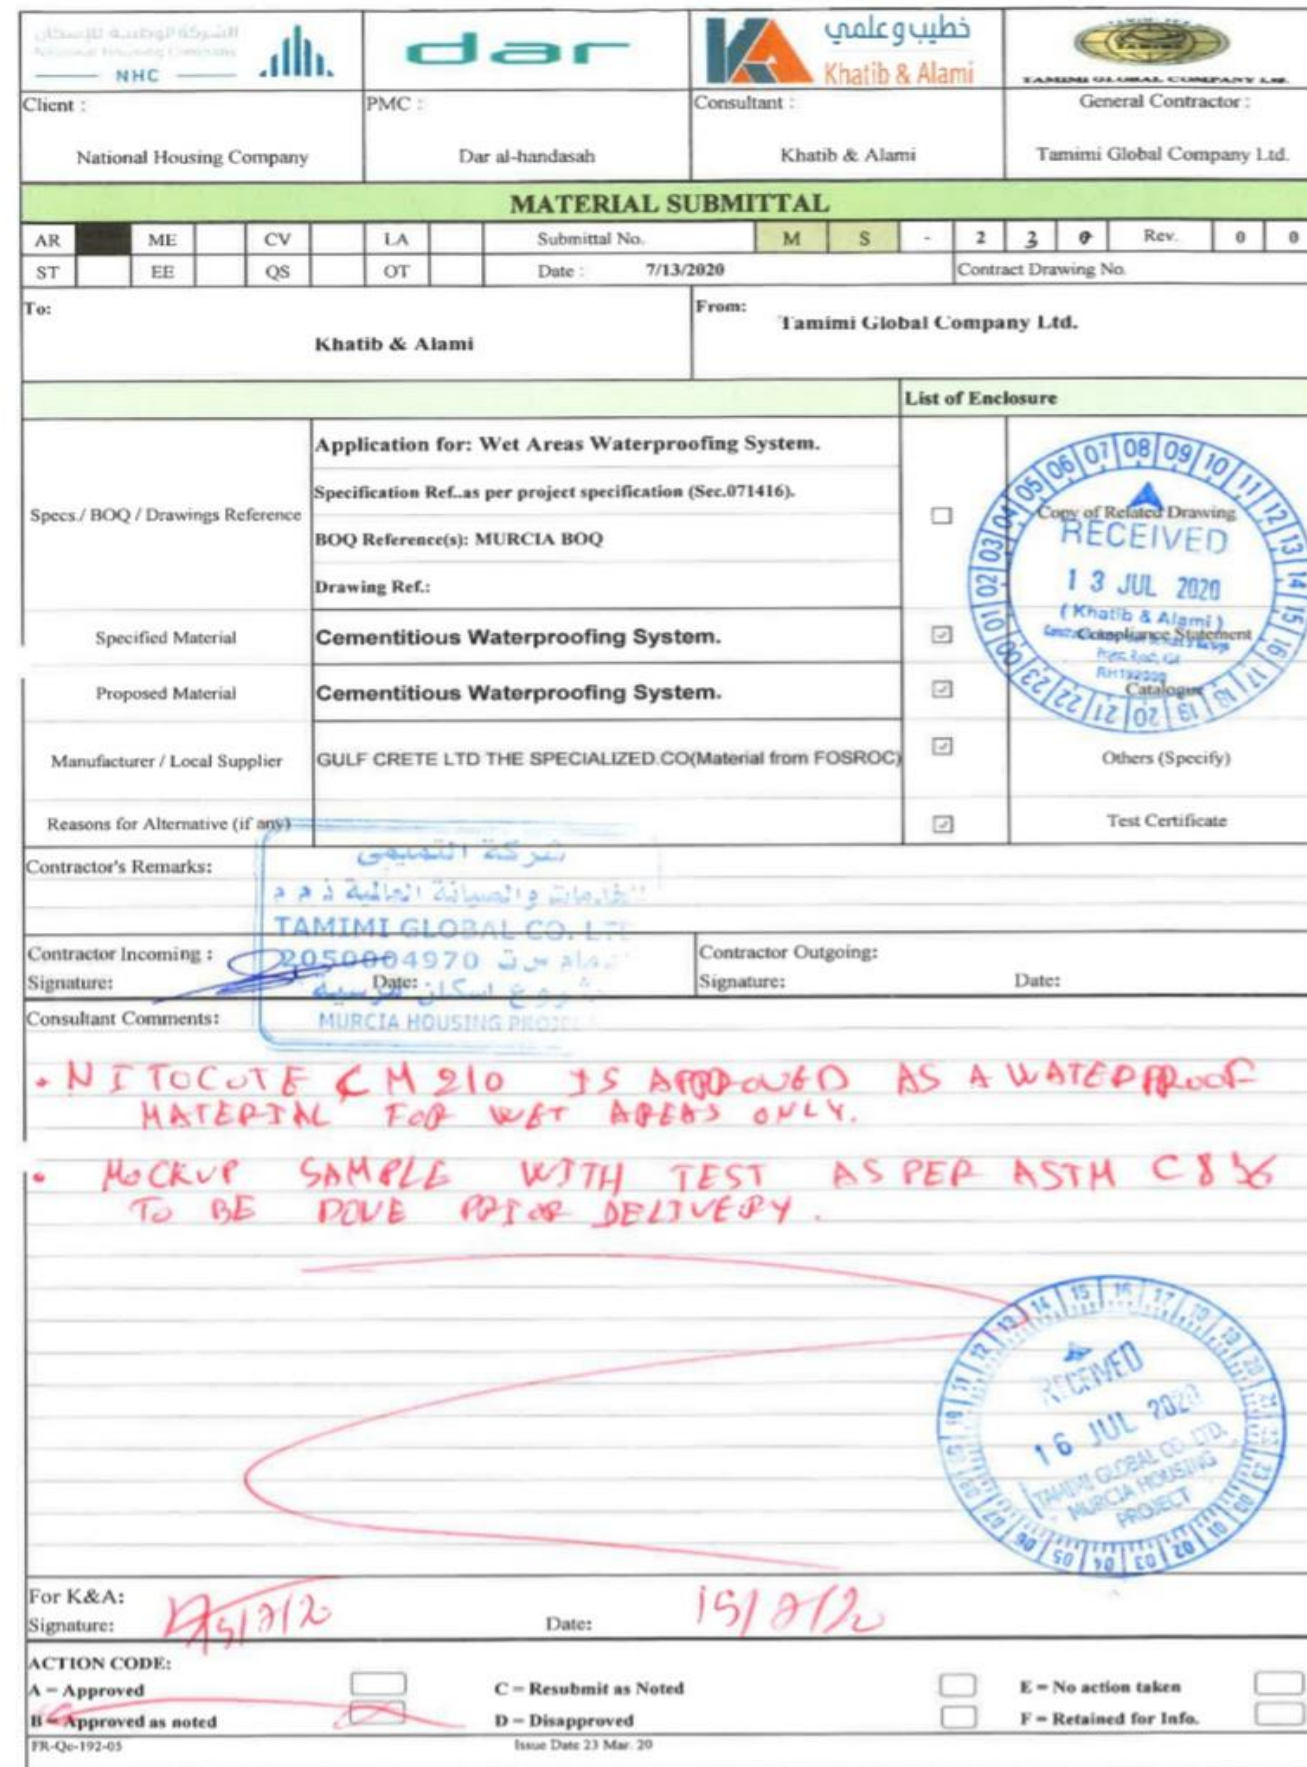 الشركة الوطنية للإسكان
National Housing Company
NHC
dar
خطيب وعلمي
Khatib & Alami
TAMIMI
TAMIMI GLOBAL COMPANY Ltd.
Client :
PMC :
Consultant :
General Contractor :
National Housing Company
Dar al-handasah
Khatib & Alami
Tamimi Global Company Ltd.
MATERIAL SUBMITTAL
AR ME CV LA Submittal No. M S - 2 3 0 Rev. 0 0
ST EE QS OT Date : 7/13/2020 Contract Drawing No.
To:
Khatib & Alami
From:
Tamimi Global Company Ltd.
List of Enclosure
Specs./ BOQ / Drawings Reference
Application for: Wet Areas Waterproofing System.
Specification Ref..as per project specification (Sec.071416).
BOQ Reference(s): MURCIA BOQ
Drawing Ref.:
Copy of Related Drawing
Specified Material
Cementitious Waterproofing System.
Compliance Statement
Proposed Material
Cementitious Waterproofing System.
Catalogue
Manufacturer / Local Supplier
GULF CRETE LTD THE SPECIALIZED.CO(Material from FOSROC)
Others (Specify)
Reasons for Alternative (if any)
Test Certificate
RECEIVED
13 JUL 2020
( Khatib & Alami )
Contractor's Remarks:
شركة التميمى
TAMIMI GLOBAL CO. LTD
2050004970
MURCIA HOUSING PROJECT
Contractor Incoming :
Signature:
Date:
Contractor Outgoing:
Signature:
Date:
Consultant Comments:
• NITOCOTE CM 210 IS APPROVED AS A WATERPROOF
MATERIAL FOR WET AREAS ONLY.
• MOCKUP SAMPLE WITH TEST AS PER ASTM C836
TO BE DONE PRIOR DELIVERY.
RECEIVED
16 JUL 2020
TAMIMI GLOBAL CO. LTD.
MURCIA HOUSING
PROJECT
For K&A:
Signature:
Date: 15/7/20
ACTION CODE:
A = Approved
C = Resubmit as Noted
E = No action taken
B = Approved as noted
D = Disapproved
F = Retained for Info.
FR-Qc-192-05
Issue Date 23 Mar. 20